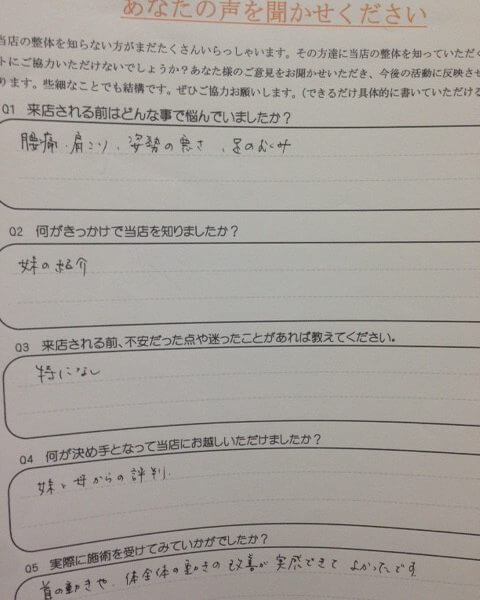 あなたの声を聞かせください
当店の整体を知らない方がまだたくさんいらっしゃいます。その方達に当店の整体を知っていただく
トにご協力いただけないでしょうか?あなた様のご意見をお聞かせいただき、今後の活動に反映させ
ります。些細なことでも結構です。ぜひご協力お願いします。(できるだけ具体的に書いていただける
Q1 来店される前はどんな事で悩んでいましたか?
腰痛、肩こり、姿勢の悪さ、足のむくみ
Q2 何がきっかけで当店を知りましたか?
妹の紹介
Q3 来店される前、不安だった点や迷ったことがあれば教えてください。
特になし
Q4 何が決め手となって当店にお越しいただけましたか?
妹と母からの評判.
Q5 実際に施術を受けてみていかがでしたか?
首の動きや、体全体の動きの改善が実感できてよかったです